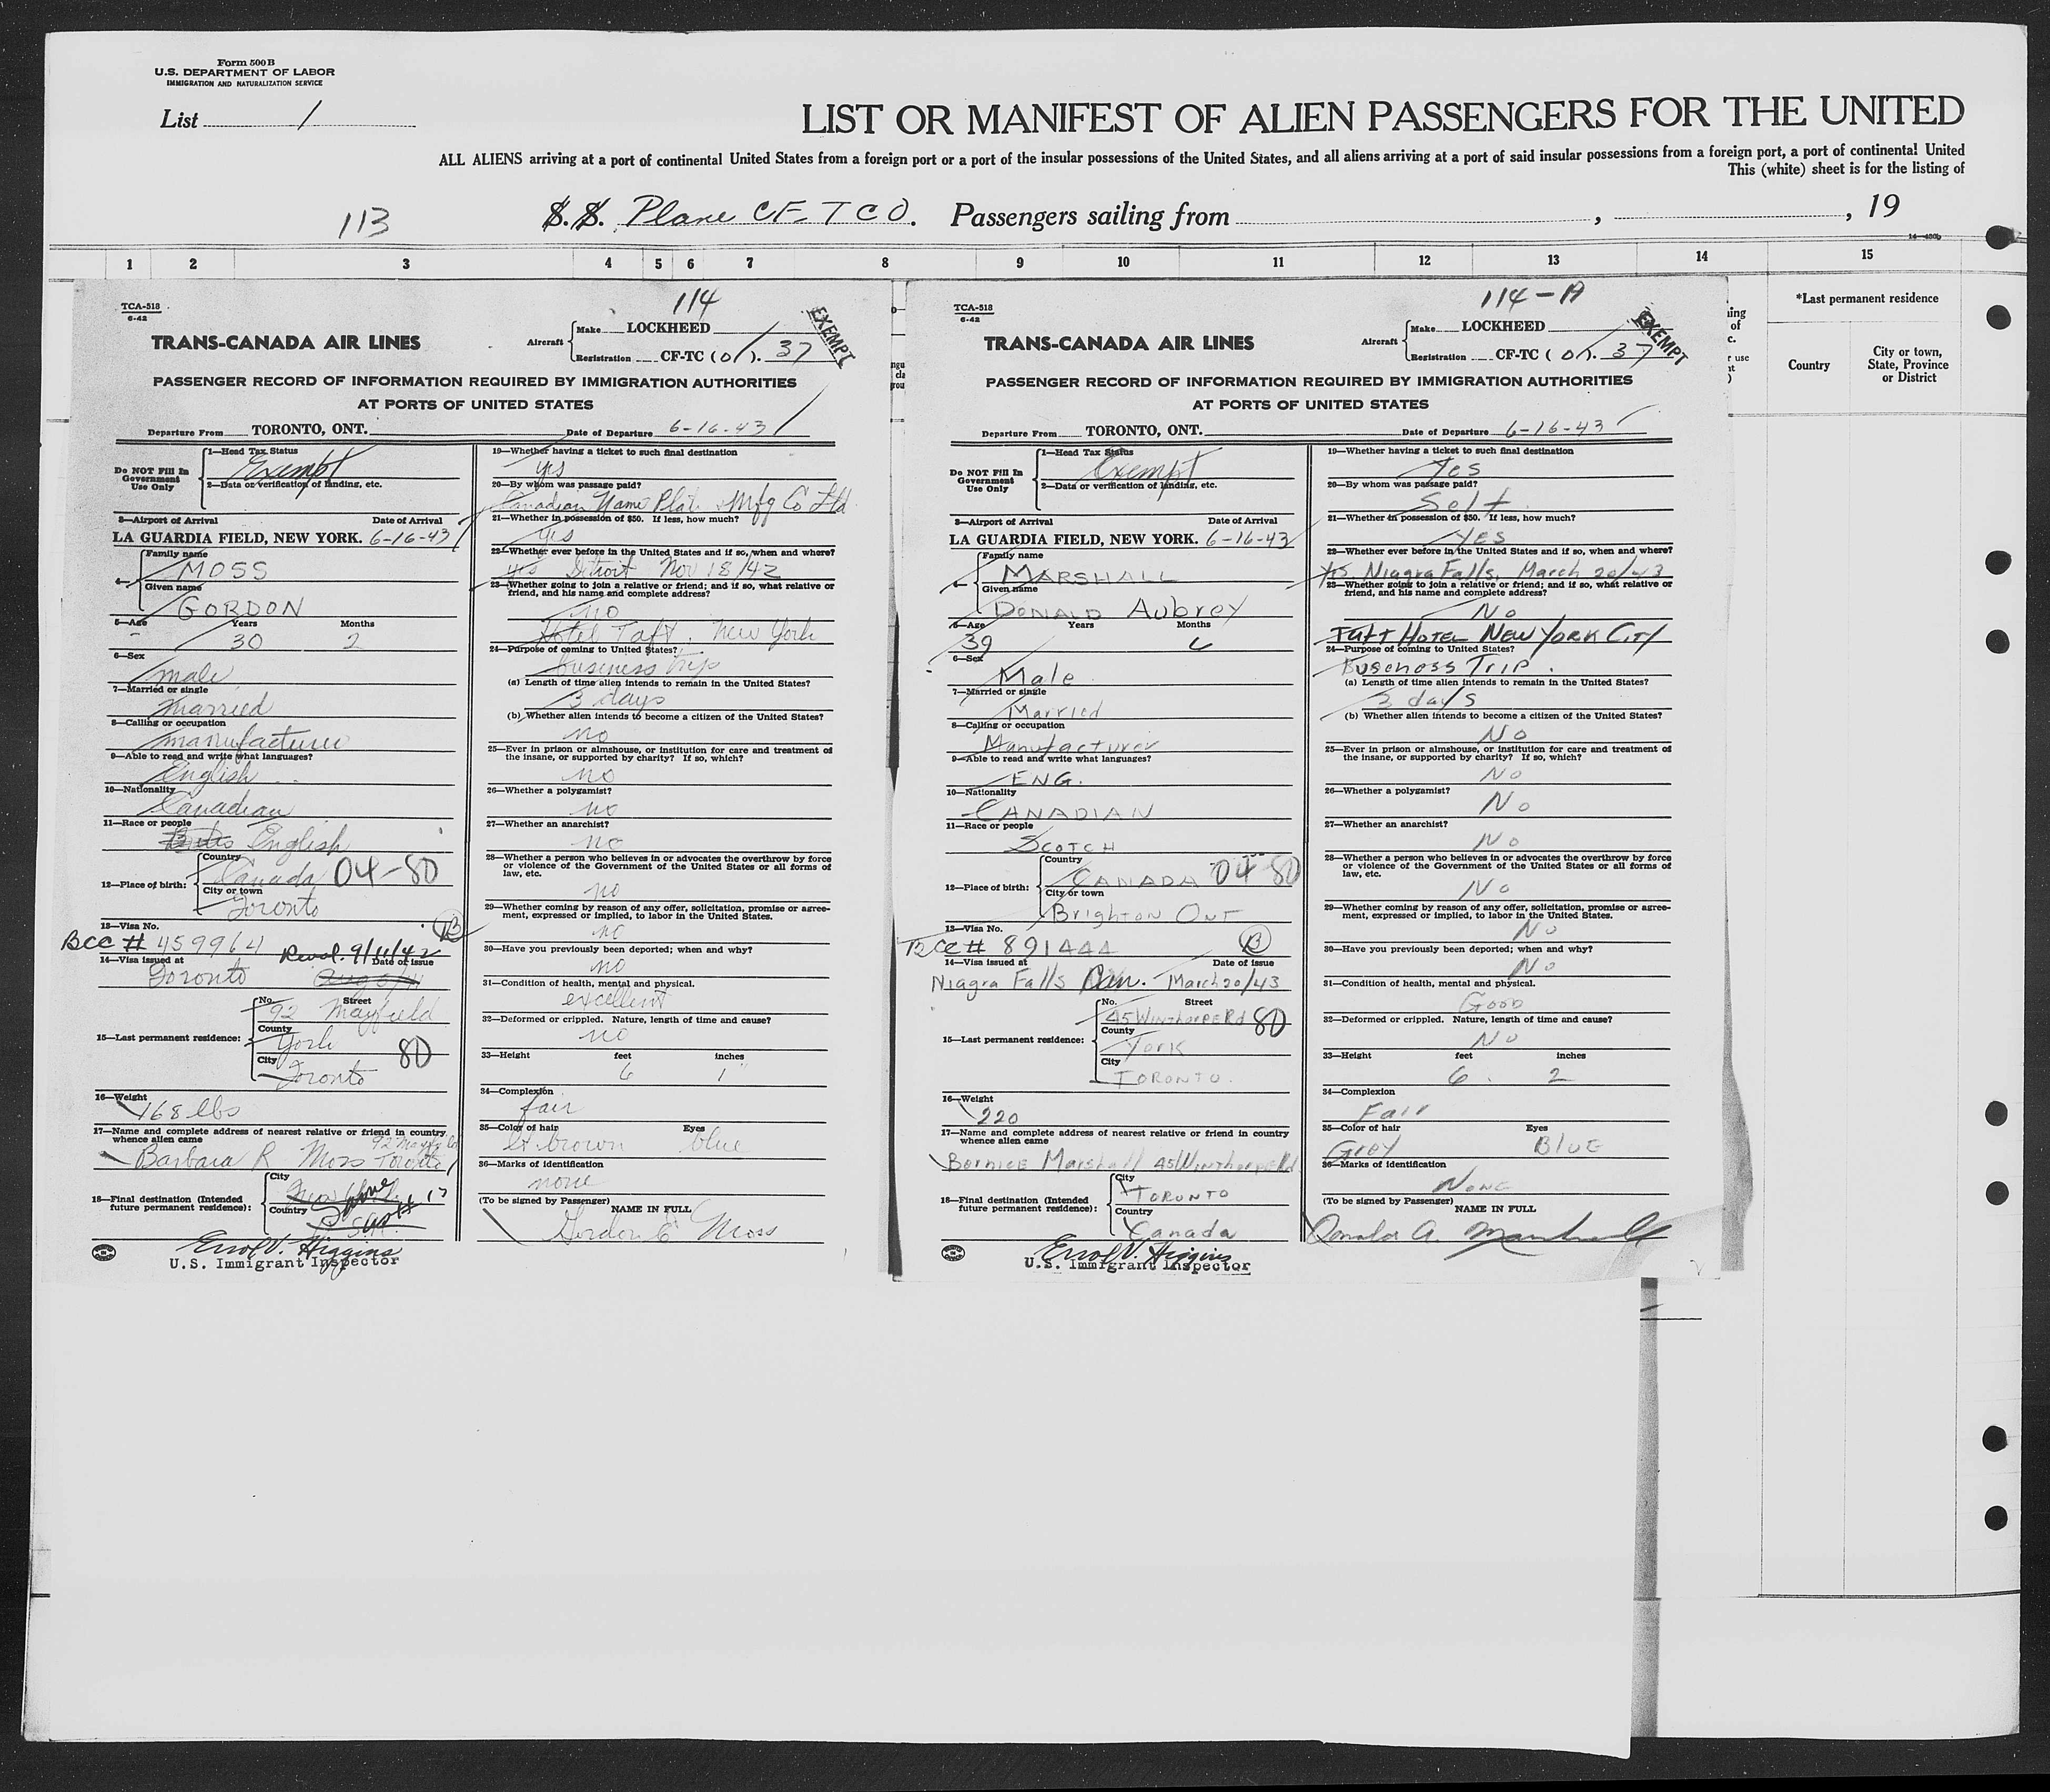 Form 500B
U.S. DEPARTMENT OF LABOR
IMMIGRATION AND NATURALIZATION SERVICE
List 1
LIST OR MANIFEST OF ALIEN PASSENGERS FOR THE UNITED
ALL ALIENS arriving at a port of continental United States from a foreign port or a port of the insular possessions of the United States, and all aliens arriving at a port of said insular possessions from a foreign port, a port of continental United
This (white) sheet is for the listing of
113 S.S. Plane CF-TCO. Passengers sailing from , , 19
1 2 3 4 5 6 7 8 9 10 11 12 13 14 15
*Last permanent residence
Country
City or town, State, Province or District
114
TCA-518
6-42
TRANS-CANADA AIR LINES
Aircraft
Make LOCKHEED
Registration CF-TC (O). 37
EXEMPT
PASSENGER RECORD OF INFORMATION REQUIRED BY IMMIGRATION AUTHORITIES
AT PORTS OF UNITED STATES
Departure From TORONTO, ONT. Date of Departure 6-16-43
Do NOT Fill In Government Use Only
1—Head Tax Status
Exempt
2—Data or verification of landing, etc.
3—Airport of Arrival Date of Arrival
LA GUARDIA FIELD, NEW YORK. 6-16-43
4—
Family name
MOSS
Given name
GORDON
5—Age Years Months
30 2
6—Sex
male
7—Married or single
Married
8—Calling or occupation
manufacturer
9—Able to read and write what languages?
English
10—Nationality
Canadian
11—Race or people
English
12—Place of birth:
Country
Canada 04-80
City or town
Toronto
13—Visa No.
BCC # 459964 Reval. 9/11/42
14—Visa issued at Date of issue
Toronto
15—Last permanent residence:
No. Street
92 Mayfield
County
York 80
City
Toronto
16—Weight
168 lbs
17—Name and complete address of nearest relative or friend in country whence alien came
Barbara R Moss Toronto
18—Final destination (Intended future permanent residence):
City
Country
Errol V. Higgins
U.S. Immigrant Inspector
19—Whether having a ticket to such final destination
yes
20—By whom was passage paid?
Canadian Name Plate Mfg Co Ltd
21—Whether in possession of $50. If less, how much?
yes
22—Whether ever before in the United States and if so, when and where?
yes Detroit Nov 18/42
23—Whether going to join a relative or friend; and if so, what relative or friend, and his name and complete address?
no
Hotel Taft. New York
24—Purpose of coming to United States?
business trip
(a) Length of time alien intends to remain in the United States?
3 days
(b) Whether alien intends to become a citizen of the United States?
no
25—Ever in prison or almshouse, or institution for care and treatment of the insane, or supported by charity? If so, which?
no
26—Whether a polygamist?
no
27—Whether an anarchist?
no
28—Whether a person who believes in or advocates the overthrow by force or violence of the Government of the United States or all forms of law, etc.
no
29—Whether coming by reason of any offer, solicitation, promise or agreement, expressed or implied, to labor in the United States.
no
30—Have you previously been deported; when and why?
no
31—Condition of health, mental and physical.
excellent
32—Deformed or crippled. Nature, length of time and cause?
no
33—Height feet inches
6 1
34—Complexion
fair
35—Color of hair Eyes
lt brown blue
36—Marks of identification
none
(To be signed by Passenger)
NAME IN FULL
Gordon E Moss
114-A
TCA-518
6-42
TRANS-CANADA AIR LINES
Aircraft
Make LOCKHEED
Registration CF-TC (O). 37
EXEMPT
PASSENGER RECORD OF INFORMATION REQUIRED BY IMMIGRATION AUTHORITIES
AT PORTS OF UNITED STATES
Departure From TORONTO, ONT. Date of Departure 6-16-43
Do NOT Fill In Government Use Only
1—Head Tax Status
Exempt
2—Data or verification of landing, etc.
3—Airport of Arrival Date of Arrival
LA GUARDIA FIELD, NEW YORK. 6-16-43
4—
Family name
MARSHALL
Given name
DONALD Aubrey
5—Age Years Months
39 6
6—Sex
Male
7—Married or single
Married
8—Calling or occupation
Manufacturer
9—Able to read and write what languages?
ENG.
10—Nationality
CANADIAN
11—Race or people
SCOTCH
12—Place of birth:
Country
CANADA 04-80
City or town
Brighton Ont
13—Visa No.
BCC # 891444
14—Visa issued at Date of issue
Niagra Falls Can. March 20/43
15—Last permanent residence:
No. Street
45 Winthorpe Rd 80
County
York
City
TORONTO
16—Weight
220
17—Name and complete address of nearest relative or friend in country whence alien came
Bernice Marshall 45 Winthorpe Rd
18—Final destination (Intended future permanent residence):
City
TORONTO
Country
Canada
Errol V. Higgins
U.S. Immigrant Inspector
19—Whether having a ticket to such final destination
Yes
20—By whom was passage paid?
Self
21—Whether in possession of $50. If less, how much?
YES
22—Whether ever before in the United States and if so, when and where?
Yes Niagra Falls, March 20/43
23—Whether going to join a relative or friend; and if so, what relative or friend, and his name and complete address?
No
TAFT HOTEL NEW YORK CITY
24—Purpose of coming to United States?
Buseness Trip.
(a) Length of time alien intends to remain in the United States?
3 days
(b) Whether alien intends to become a citizen of the United States?
No
25—Ever in prison or almshouse, or institution for care and treatment of the insane, or supported by charity? If so, which?
No
26—Whether a polygamist?
No
27—Whether an anarchist?
No
28—Whether a person who believes in or advocates the overthrow by force or violence of the Government of the United States or all forms of law, etc.
No
29—Whether coming by reason of any offer, solicitation, promise or agreement, expressed or implied, to labor in the United States.
No
30—Have you previously been deported; when and why?
No
31—Condition of health, mental and physical.
Good
32—Deformed or crippled. Nature, length of time and cause?
No
33—Height feet inches
6 2
34—Complexion
Fair
35—Color of hair Eyes
Grey Blue
36—Marks of identification
None
(To be signed by Passenger)
NAME IN FULL
Donald A. Marshall